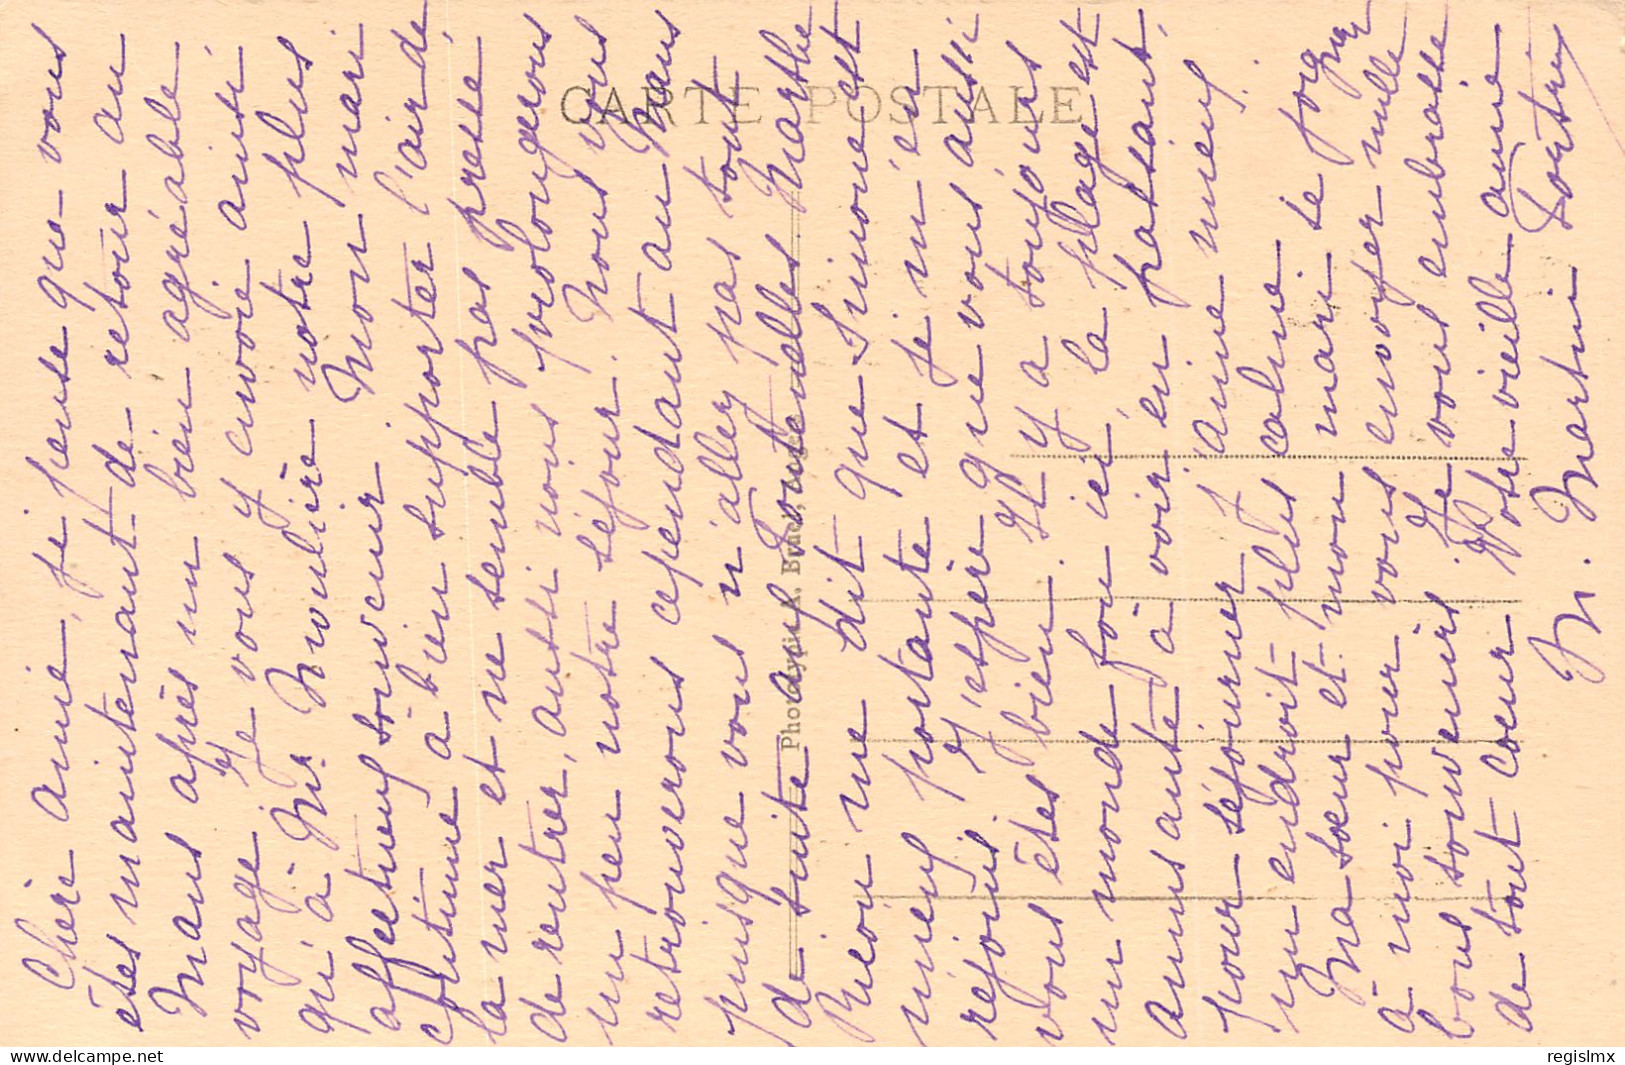 Chère amie, je pense que vous
êtes maintenant de retour au
Mans après un bien agréable
voyage. Je vous y envoie ainsi
qu'à Mr Moulière notre plus
affectueux souvenir. Mon mari
continue à bien supporter l'air de
la mer et ne semble pas pressé
de rentrer, aussi nous prolongerons
un peu notre séjour. Nous vous
retrouverons cependant au Mans
puisque vous n'allez pas tout
de suite aux Fontenelles Marthe
me dit que Simone est
mieux portante et je m'en
réjouis. J'espère que vous aussi
vous êtes bien. Il y a toujours
un monde fou ici, la plage est
amusante à voir en passant,
pour séjourner j'aime mieux
un endroit plus calme.
Ma soeur et mon mari se joignent
à moi pour vous envoyer mille
bons souvenirs. Je vous embrasse
de tout coeur. Votre vieille amie
M. Martin
CARTE POSTALE
regislmx